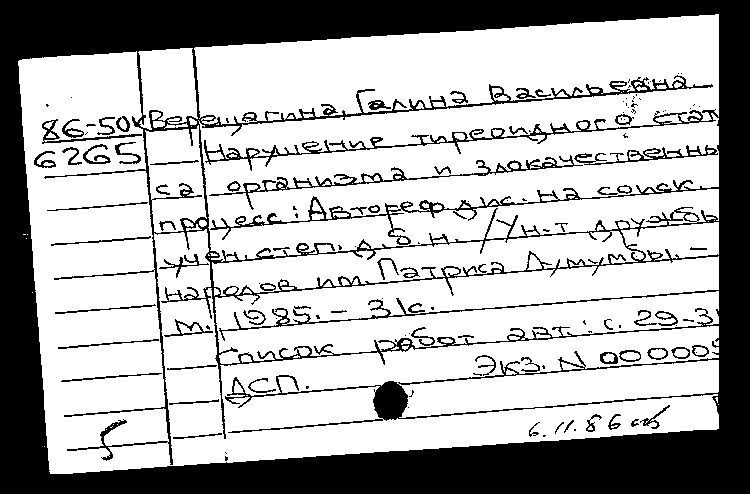 86-50к Верещагина, Галина Васильевна.
6265 Нарушение тиреоидного стату
са организма и злокачественны
процесс: Автореф. дис. на соиск.
учен. степ. д. б. н. / Ун-т дружбы
народов им. Патриса Лумумбы. -
М., 1985. - 31с.
Список работ авт.: с. 29-31
ДСП. Экз. N 000005
5 6.11.86